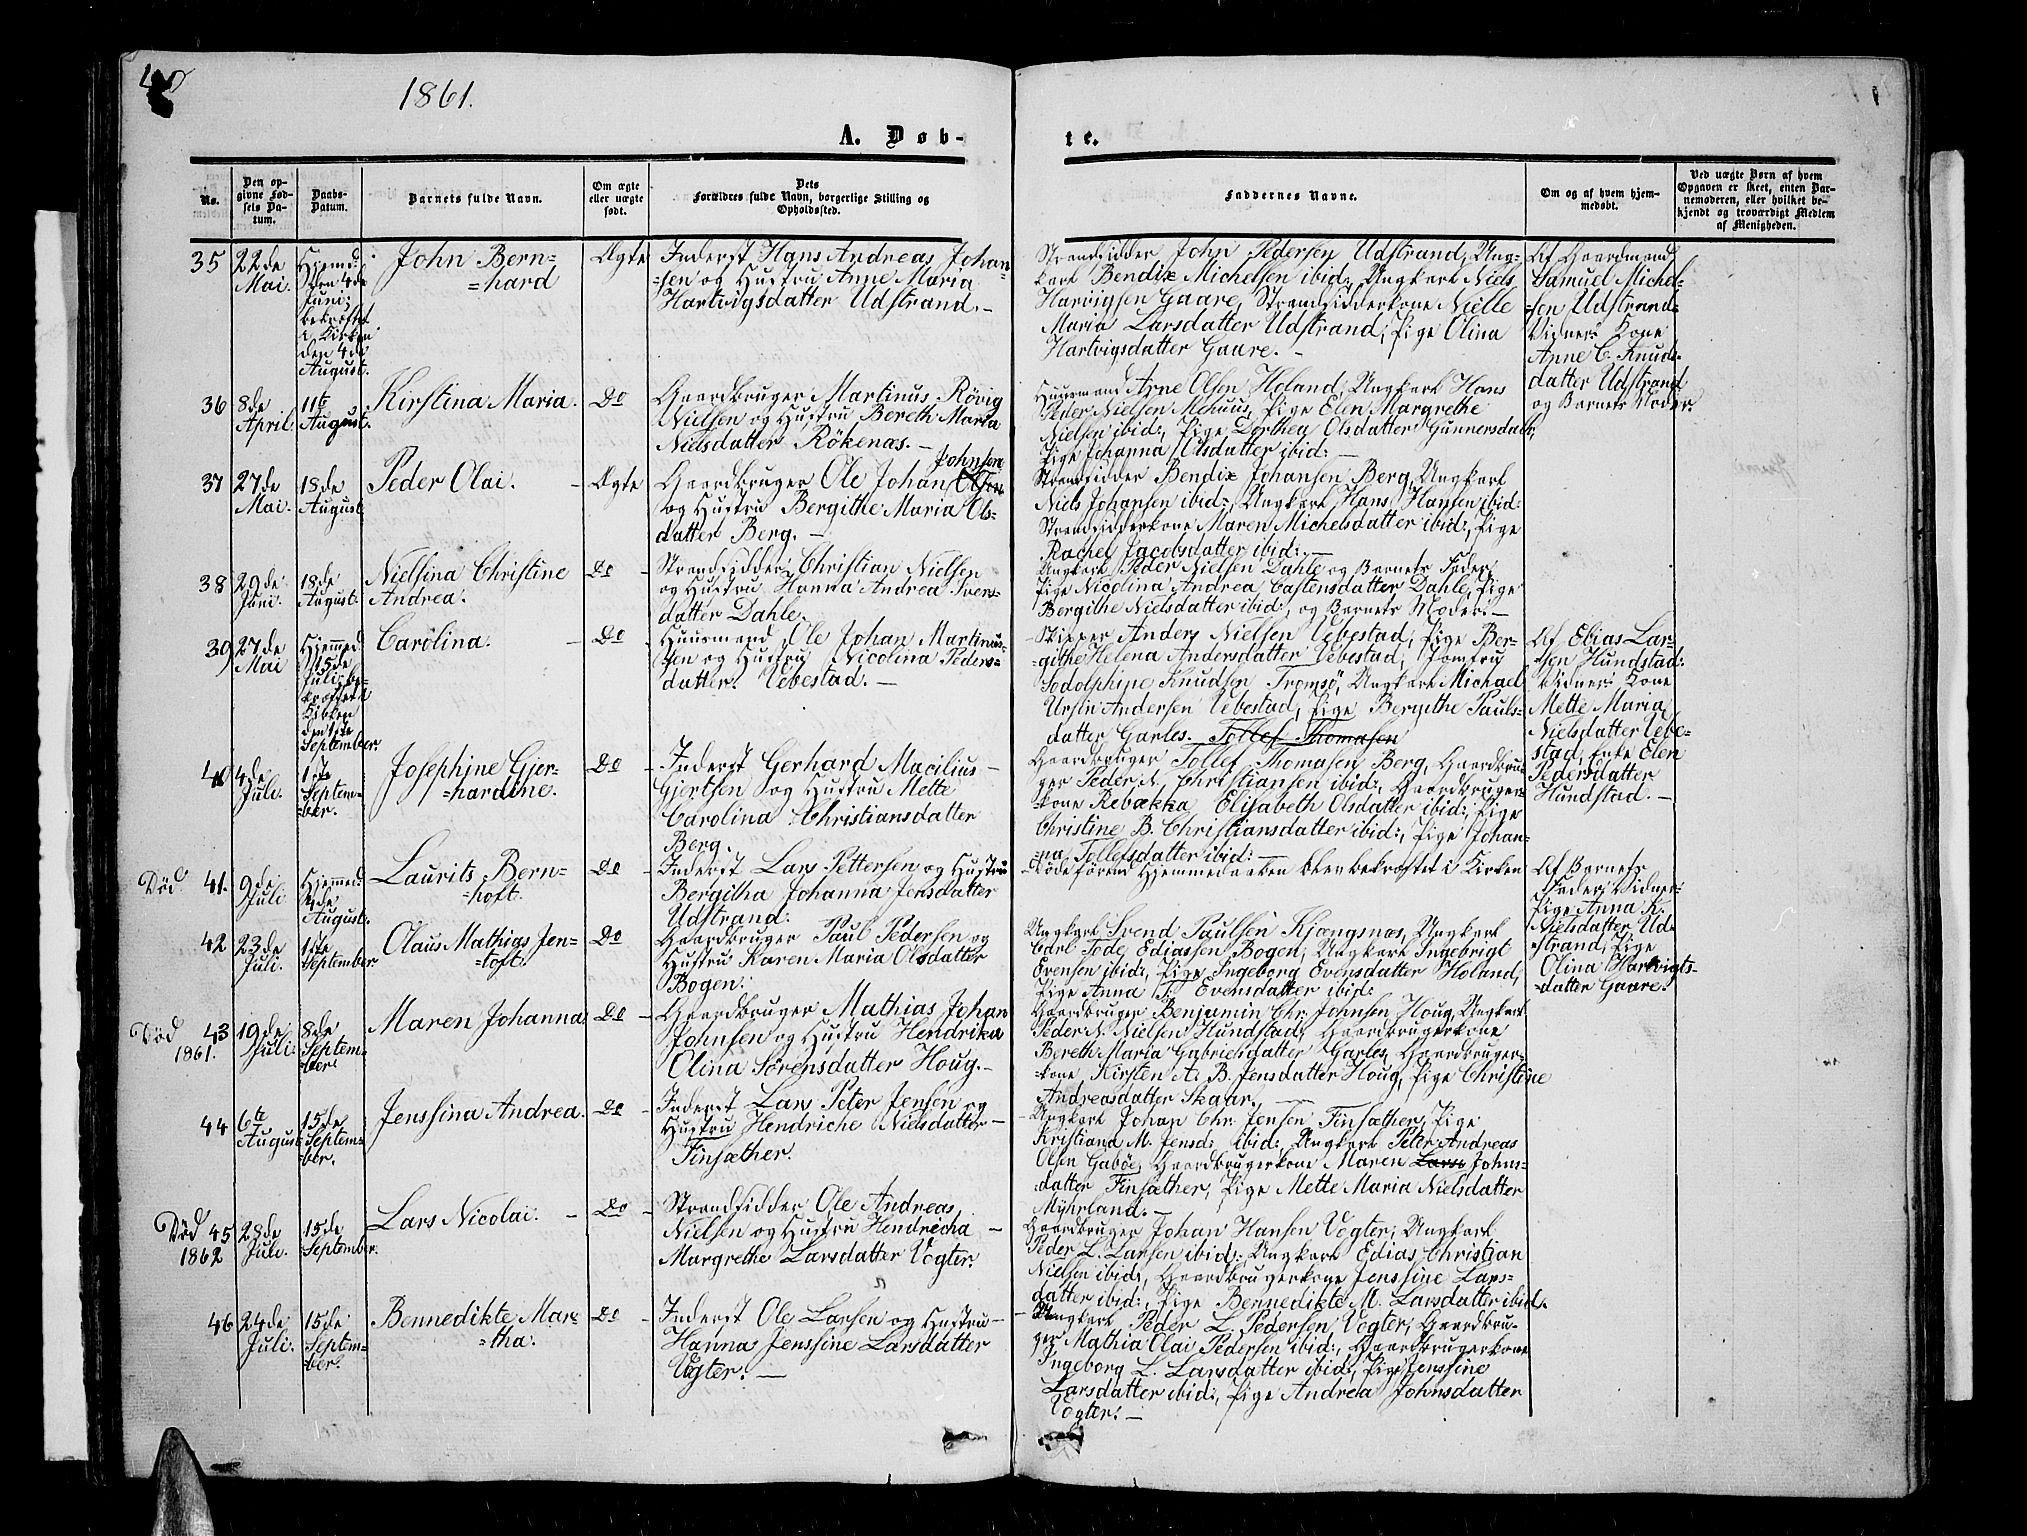 1861.
A. Døb-
te.
No.
Den op-
givne Fød-
sels Da-
tum.
Daabs-
Datum.
Barnets fulde Navn.
Om ægte
eller uægte
født.
Dets
Forældres fulde Navn, borgerlige Stilling og
Opholdssted.
Faddernes Navne.
Om og af hvem hjem-
medøbt.
Ved uægte Børn af hvem
Opgaven er skeet, enten Bar-
nemoderen, eller hvilket be-
kjendt og troværdigt Medlem
af Menigheden.
35
22de
Mai.
Hjemd.
den 4de
Juni;
bekræftet
i Kirken
den 4de
August.
John Bern=
=hard
Ægte
Inderst Hans Andreas Johan-
=sen og Hustru Anne Maria
Hartvigsdatter Udstrand. —
Strandsidder John Pedersen Udstrand, Ung-
karl Bendix Michelsen ibid:, Ungkarl Niels
Harvigsen Gaare, Strandsidderkone Nille
Maria Larsdatter Udstrand; Pige Olina
Hartvigsdatter Gaare. —
Af Gaardmand
Samuel Michel-
=sen Udstrand.
Vidner: Kone
Anne C. Knuds-
datter Udstrand
og Barnets Moder.
36
8de
April
11te
August.
Kirstina Maria.
Do
Gaardbruger Martinus Rövig
Nielsen og Hustru Bereth Maria
Nielsdatter Rökenæs. —
Huusmand Arne Olsen Holand; Ungkarl Hans
Peder Nielsen Mehuus, Pige Elen Margrethe
Nielsen ibid:, Pige Dorthea Olsdatter Gunnersdatt,
Pige Johanna Olsdatter ibid: —
37
27de
Mai.
18de
August
Peder Olai. —
Ægte
Johnsen
Gaardbruger Ole Johan Olsen
og Hustru Bergithe Maria Ols-
datter Berg. —
Strandsidder Bendix Johansen Berg, Ungkarl
Niels Johansen ibid:, Ungkarl Hans Hansen ibid:
Strandsidderkone Maren Michelsdatter ibid:, Pige
Rachel Jacobsdatter ibid:. —
38
29de
Juni.
18de
August.
Nielsina Christine
Andrea.
Do —
Strandsidder Christian Nielsen
og Hustru Hanna Andrea Ivers-
datter Dahle.
Ungkarl Peder Nielsen Dahle og Barnets Fader
Pige Nicolina Andrea Castensdatter Dahle, Pige
Bergithe Nielsdatter ibid:, og Barnets Moder. —
39
27de
Mai
Hjemmed.
15de
Juli; be-
kræftet i
Kirken
den 1ste
September
Carolina. —
Do —
Huusmand Ole Johan Martinus-
sen og Hustru Nicolina Peders-
datter. Vebestad. —
Skipper Anders Nielsen Vebestad; Pige Ber-
githe Helena Andersdatter Vebestad, Jomfru
Knudsen Tromsö, Ungkarl Michael
Ursin Andersen Vebestad, Pige Bergithe Pauls-
datter Garles. Tollef Thomasen
Af Elias Lar-
=sen Hundstad:
Vidner: Kone
Mette Maria
Nielsdatter Vebe-
stad, Enke Elen
Pedersdatter
Hundstad. —
40
4de
Juli.
1ste
Septem-
=ber.
Josephine Gjer-
=hardine.
Do —
Inderst Gerhard Macilius —
Gjertsen og Hustru Mette
Carolina Christiansdatter
Berg.
Gaardbruger Tollef Thomasen Berg, Gaardbru-
ger Peder N. Christiansen ibid:, Gaardbruger-
=kone Rebækka Elisabeth Olsdatter ibid:, Pige
Christine B. Christiansdatter ibid:, Pige Johan-
na Tollefsdatter ibid: —
Död. 41.
9de
Juli
Hjemmed.
de
August.
Laurits Bern=
=hoft.
Do —
Inderst Lars Pettersen og Hustru
Bergitha Johanna Jensdatter
Udstrand.
Döde förend Hjemmedaaben blev bekræftet i Kirken
Af Barnets
Fader; Vidner:
Pige Anna K.
Nielsdatter Ud-
strand, Pige
Olina Hartvigts-
=datter Gaare.
42
23de
Juli.
1ste
September
Olaus Mathias Jen-
=toft.
Do
Gaardbruger Paul Pedersen og
Hustru Karen Maria Olsdatter
Bogen.
Ungkarl Svend Paulsen Kjængsnæs, Ungkarl
Carl Tode Ediassen Bogen, Ungkarl Ingebrigt
Evensen ibid:, Pige Ingeborg Evensdatter Holand,
Pige Anna T. Evensdatter ibid:
Död
1861.
43
19de
Juli.
8de
Septem-
ber
Maren Johanna
Do —
Gaardbruger Mathias Johan
Johnsen og Hustru Hendrika
Olina Sörensdatter Houg. —
Gaardbruger Benjamin Chr. Johnsen Houg, Ungkarl
Peder N. Nielsen Hundstad, Gaardbrugerkone
Bereth Maria Gabrielsdatter Garles, Gaardbruger-
=kone Kirsten A. B. Jensdatter Houg, Pige Christine
Andreasdatter Skaar. —
44
6te
August
15de
Septem-
ber.
Jenssina Andrea.
Do —
Inderst Lars Peter Jensen og
Hustru Hendriche Nielsdatter —
Finsæther.
Ungkarl Johan Chr. Jensen Finsæther, Pige
Kristiana M. Jensd: ibid:, Ungkarl Peter Andreas
Olsen Gaböe, Gaardbrugerkone Maren Lars Johns-
datter Finsæther, Pige Mette Maria Nielsdatter
Myhrland. —
Död 45
1862
28de
Juli.
15de
September.
Lars Nicolai. —
Do —
Strandsidder Ole Andreas
Nielsen og Hustru Hendricha —
Margrethe Larsdatter Vogter.
Gaardbruger Johan Hansen Vogter, Ungkarl
Peder L. Larsen ibid:, Ungkarl Edias Christian
Nielsen ibid:, Gaardbrugerkone Jenssine Lars-
datter ibid:, Pige Bennedikte M. Larsdatter ibid.
46
24de
Juli.
15de
Septem-
ber.
Bennedikte Mar-
=tha.
Do —
Inderst Ole Larsen og Hustru —
Hanna Jenssine Larsdatter
Vogter. —
Ungkarl Peder L. Pedersen Vogter, Gaardbru-
ger Mathia Olai Pedersen ibid:, Gaardbrugerkone
Ingeborg L. Larsdatter ibid:, Pige Jenssine
Larsdatter ibid:, Pige Andrea Johnsdatter
Vogter. —